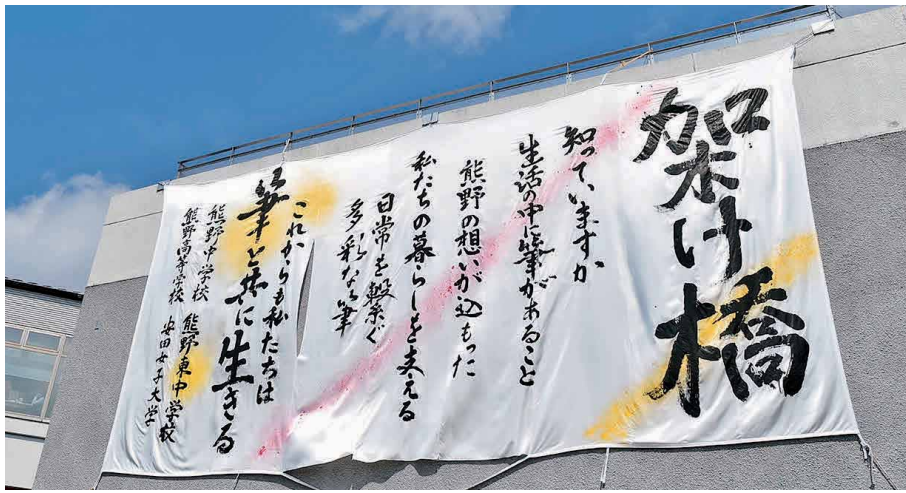 架け橋
知っていますか
生活の中に筆があること
熊野の想いが込もった
私たちの暮らしを支える
日常を繋ぐ
多彩な筆
これからも私たちは
筆と共に生きる
熊野中学校 熊野東中学校
熊野高等学校 安田女子大学